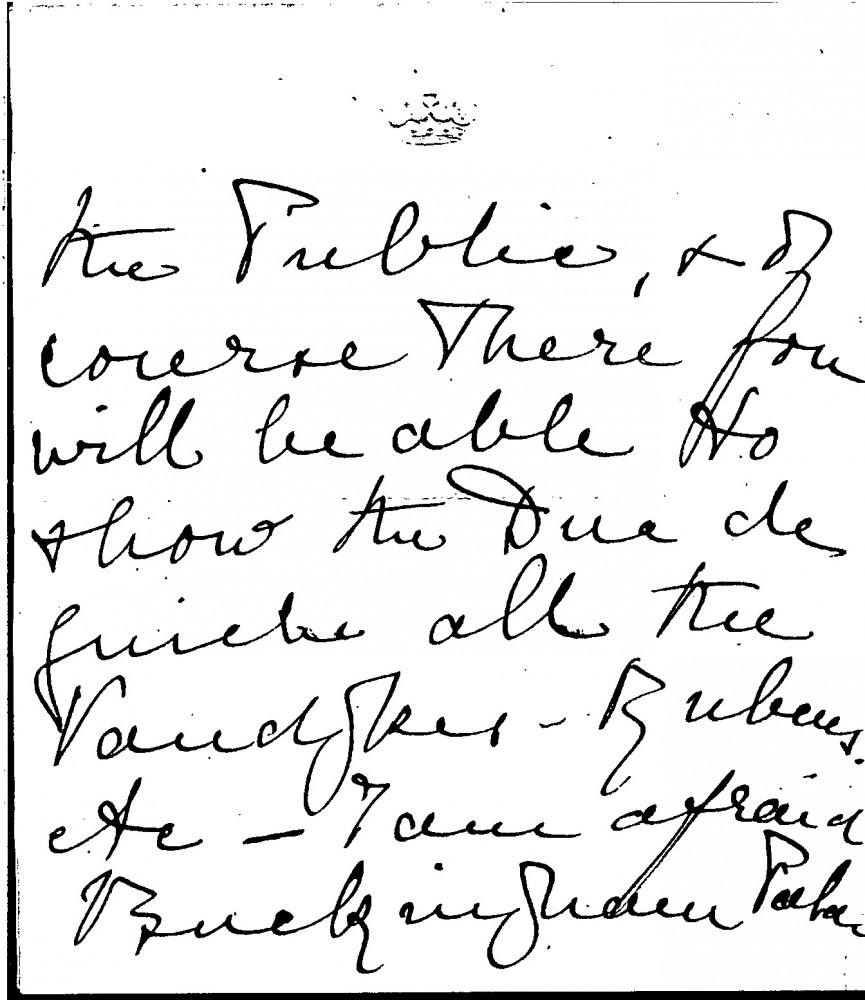 the Public, & of
course there you
will be able to
show the Duc de
guiche all the
Vandykes - Rubens.
etc — I am afraid
Buckingham Palac